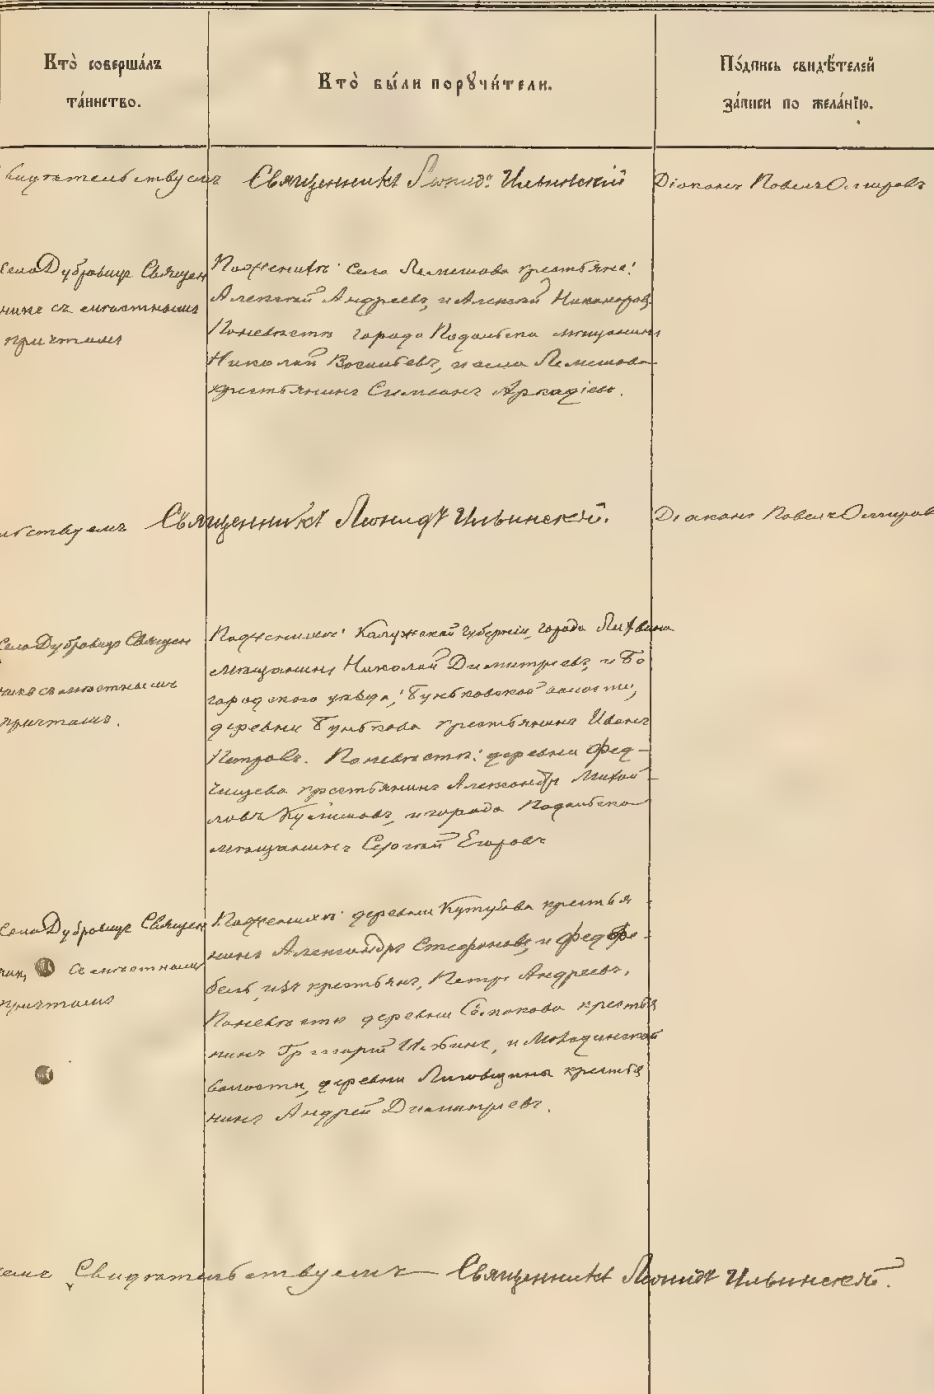 Кто̀ соверша́лъ
та́инство.
Кто̀ бы́ли порꙋчи́тели.
По́дпись свидѣ́телей
за́писи по жела́нїю.
свидѣтельствуемъ Священникъ Леонидъ Ильинскій Діаконъ Павелъ
Села Дубровицъ Священ
никъ съ мѣстнымъ
причтомъ
По женихѣ: села Лемешова крестьяне:
Алексѣй Андреевъ, и Алексѣй Никаноровъ
По невѣстѣ города Подольска мѣщанинъ
Николай Васильевъ, и села Лемешова
крестьянинъ Симеонъ Аркадіевъ.
льствуемъ Священникъ Леонидъ Ильинскій. Діаконъ Павелъ
Села Дубровицъ Священ
никъ съ мѣстнымъ
причтомъ.
По женихѣ: Калужской губерніи, города Лихвина
мѣщанинъ Николай Димитріевъ, и Бо
городскаго уѣзда, Буньковской волости,
деревни Бунькова крестьянинъ Иванъ
Петровъ. По невѣстѣ: деревни Фед-
чищева крестьянинъ Александръ Михай-
ловъ и города Подольска
мѣщанинъ Сергѣй Егоровъ
Села Дубровицъ Священ
никъ, съ мѣстнымъ
причтомъ
По женихѣ: деревни Кутузова крестья-
нинъ Александръ Стефановъ, и
изъ крестьянъ, Петръ Андреевъ.
По невѣстѣ деревни крестья
нинъ Григорій и
волости, деревни крестья
нинъ Андрей Димитріевъ.
емъ Свидѣтельствуемъ Священникъ Леонидъ Ильинскій.